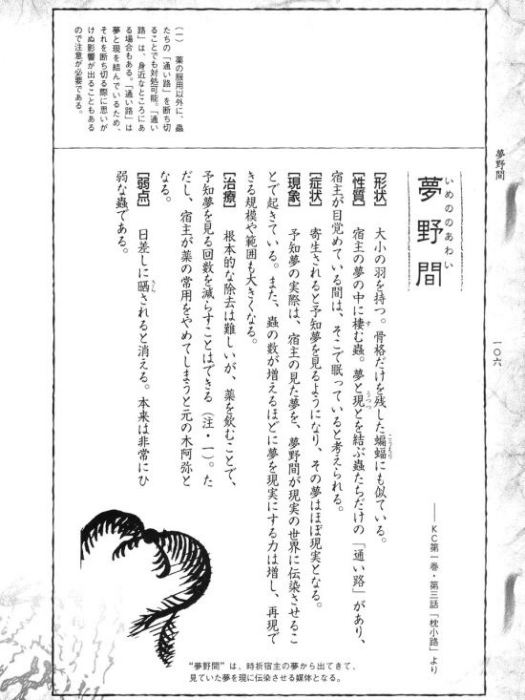 夢野間
一〇六
いめののあわい
夢野間
――KC第一巻・第三話「枕小路」より
【形状】 大小の羽を持つ。骨格だけを残した蝙蝠にも似ている。
こうもり
【性質】 宿主の夢の中に棲む蟲。夢と現とを結ぶ蟲たちだけの「通い路」があり、
す
うつつ
宿主が目覚めている間は、そこで眠っていると考えられる。
【症状】 寄生されると予知夢を見るようになり、その夢はほぼ現実となる。
【現象】 予知夢の実際は、宿主の見た夢を、夢野間が現実の世界に伝染させるこ
とで起きている。また、蟲の数が増えるほどに夢を現実にする力は増し、再現で
きる規模や範囲も大きくなる。
【治療】 根本的な除去は難しいが、薬を飲むことで、
予知夢を見る回数を減らすことはできる（注・一）。た
だし、宿主が薬の常用をやめてしまうと元の木阿弥と
なる。
【弱点】 日差しに晒されると消える。本来は非常にひ
さら
弱な蟲である。
（一） 薬の服用以外に、蟲
たちの「通い路」を断ち切
ることでも対処可能。「通い
路」は、身近なところにあ
る場合もある。「通い路」は
夢と現を結んでいるため、
それを断ち切る際に思いが
けぬ影響が出ることもある
ので注意が必要である。
“夢野間”は、時折宿主の夢から出てきて、
見ていた夢を現に伝染させる媒体となる。